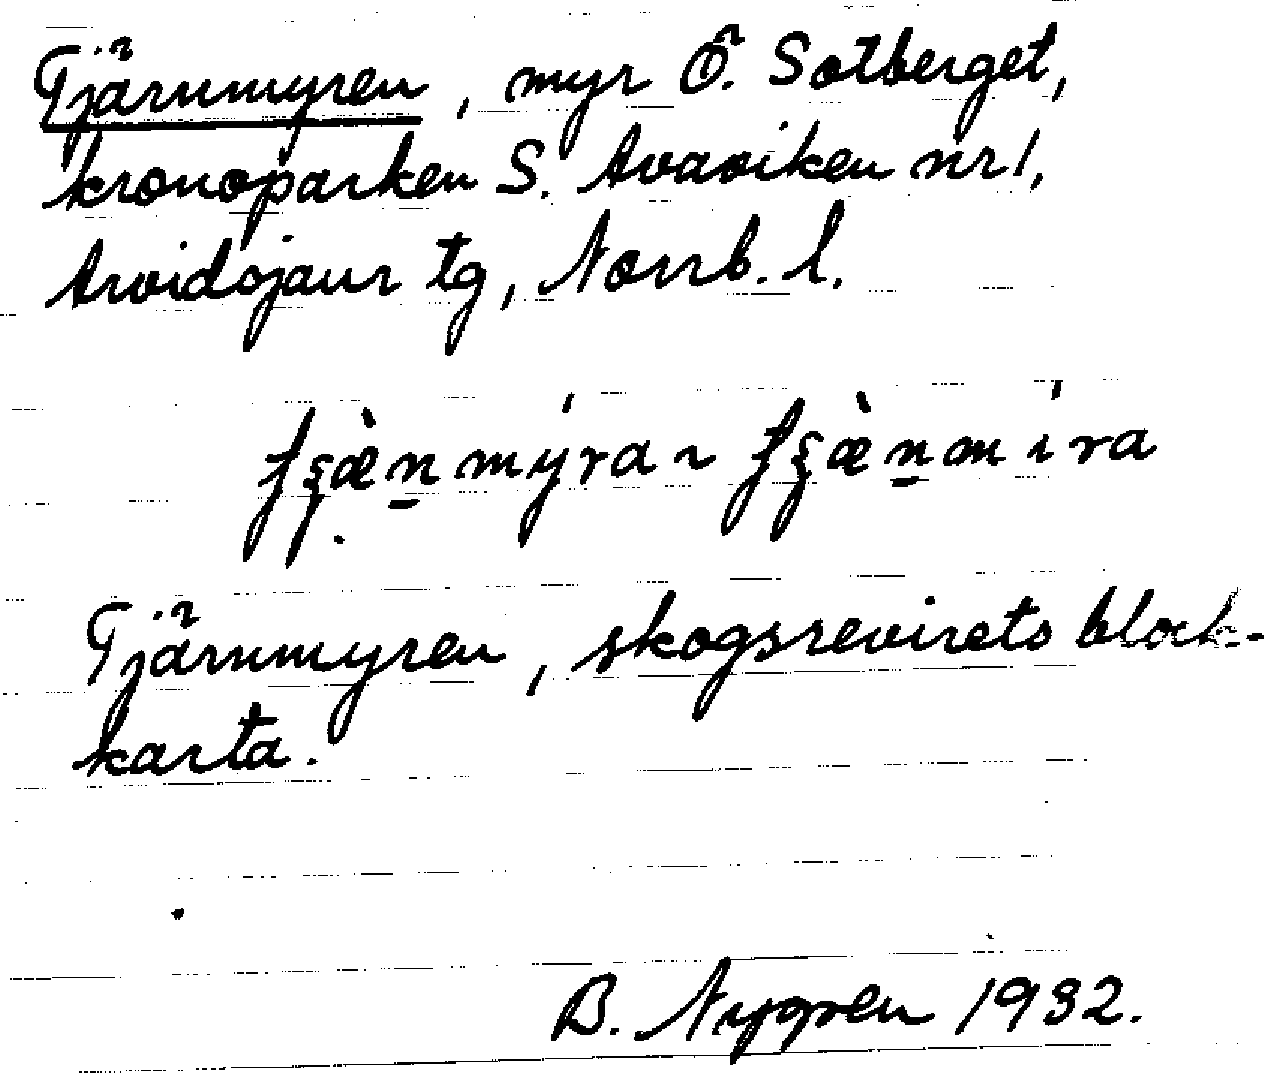 Tjärnmyren, myr Ö. Sotberget,
kronoparken S. Avaviken nr 1,
Arvidsjaur tg, Norrb. l.
Tjärnmyren, skogsrevirets block-
karta.
B. Nygren 1932.